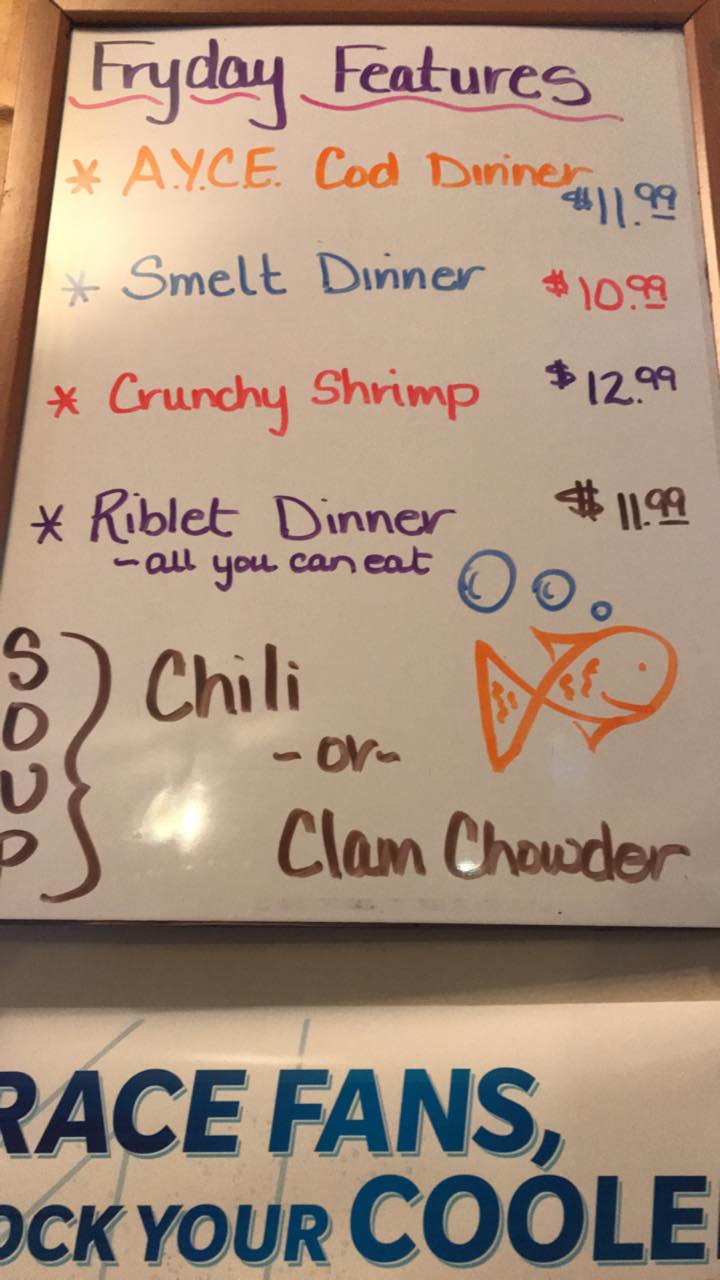 Fryday Features
* A.Y.C.E. Cod Dinner $11.99
* Smelt Dinner $10.99
* Crunchy Shrimp $12.99
* Riblet Dinner $11.99
-all you can eat
SOUP } Chili
-or-
Clam Chowder
RACE FANS,
OCK YOUR COOLE